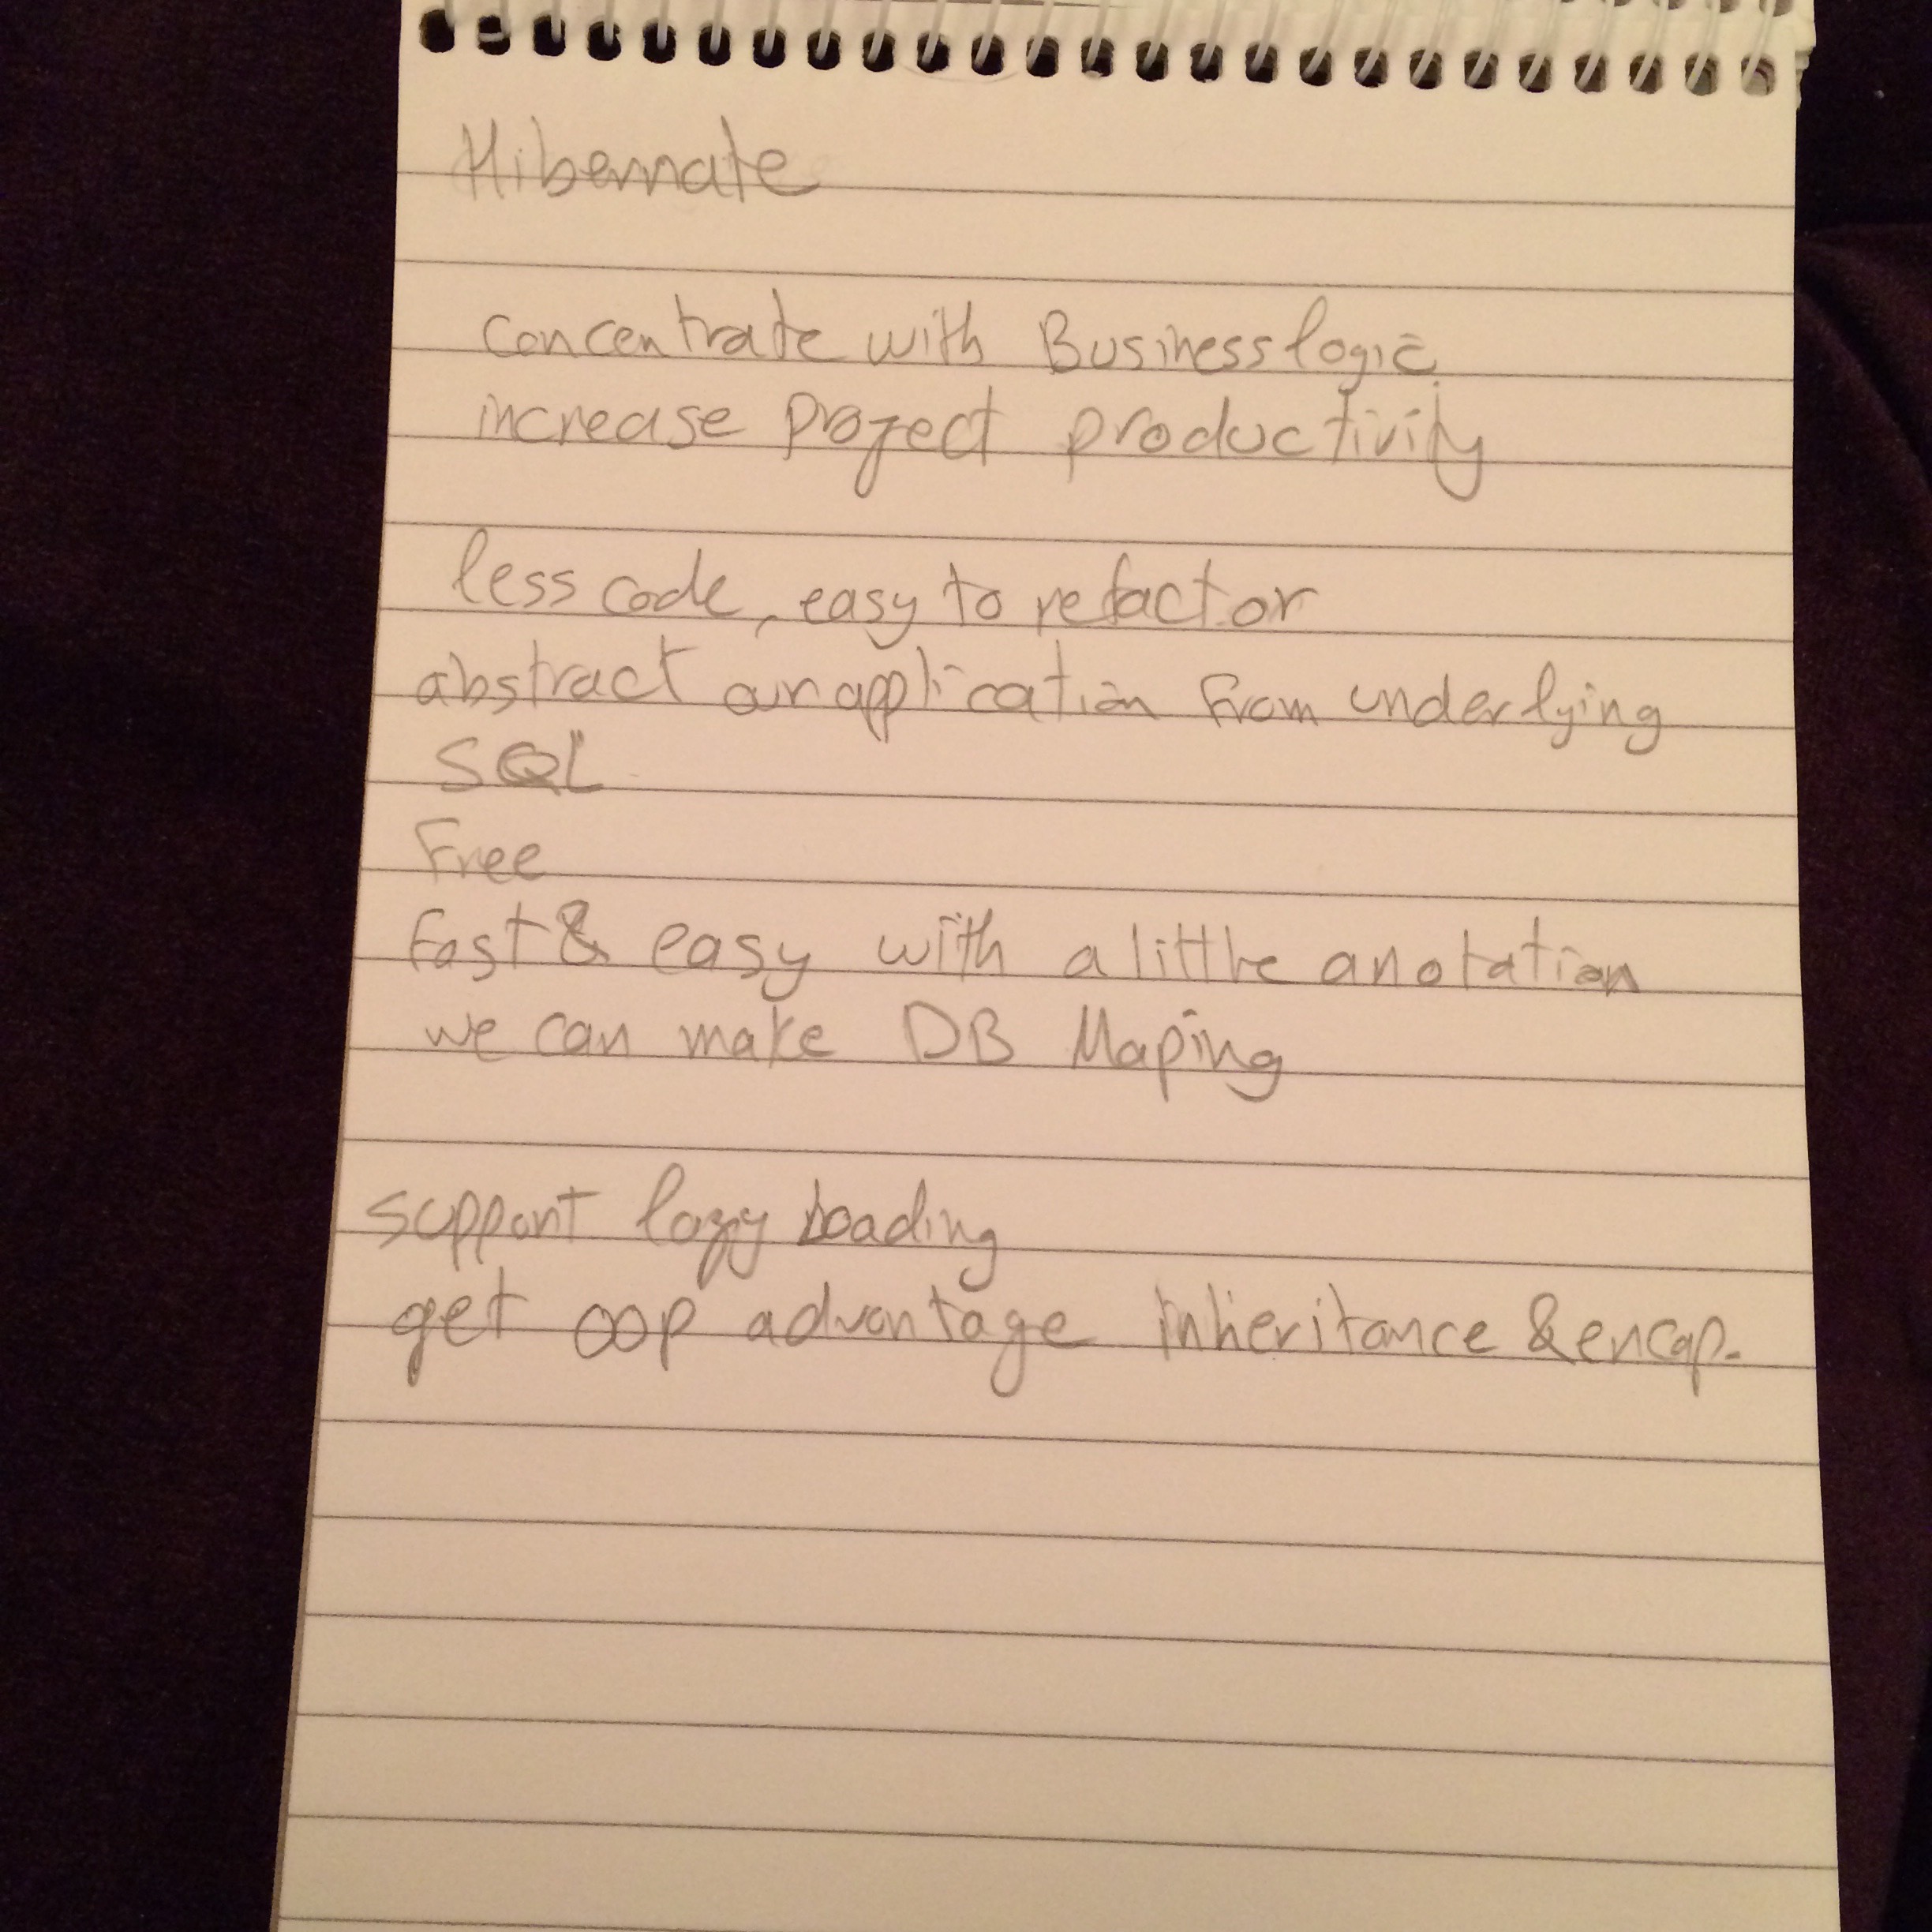 Hibernate
concentrate with Business logic
increase project productivity
less code, easy to refactor
abstract our application from underlying
SQL
Free
fast & easy with a little anotation
we can make DB Maping
support lazy Loading
get oop advantage inheritance & encap.